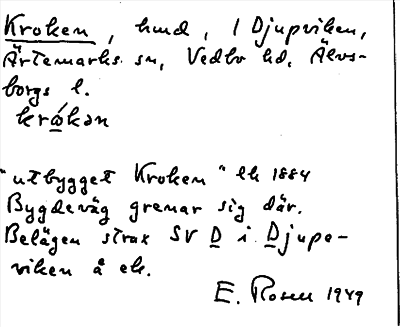 Kroken, hmd, i Djupviken,
Ärtemarks sn, Vedbo hd, Älvs-
borgs l.
krókən
"utbygget Kroken" ek 1884
Bygdeväg grenar sig där.
Belägen strax SV D i Djupe-
viken å ek.
E. Rosen 1949